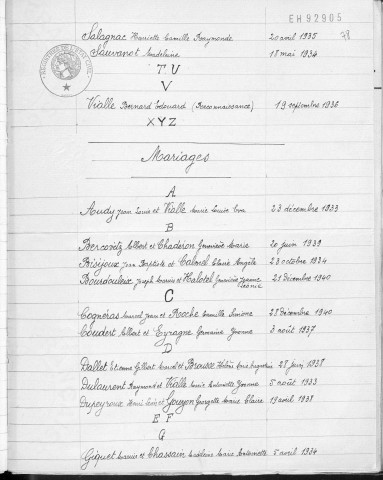 EH 92905
78
Salagnac Mariette Camille Raymonde 20 avril 1935
Sauvanot Madeleine 18 mai 1934
T U
V
Vialle Bernard Edouard (Reconnaissance) 19 septembre 1936
X Y Z
Mariages
A
Audy Jean Louis et Vialle Marie Louise 23 décembre 1933
B
Bercovitz Albert et Chaderon Geneviève Marie 20 juin 1939
Bisijoux Jean Baptiste et Calonel Claire Angèle 23 octobre 1934
Bourdouleix Joseph et Halotel Geneviève Jeanne 28 décembre 1940
C
Cognéras Marcel Jean et Roche Camille Simone 28 décembre 1940
Coudert Albert et Eyragne Germaine Yvonne 3 août 1937
D
Dallet Etienne Gilbert Marcel et Broux 28 juin 1938
Dulaurent Raymond et Vialle Marie Antoinette Yvonne 5 août 1933
Dupeyroux Henri et Gouyon Georgette Marie Claire 19 avril 1938
E F
G
Giquet et Chassain Madeleine Marie Antoinette 5 avril 1934